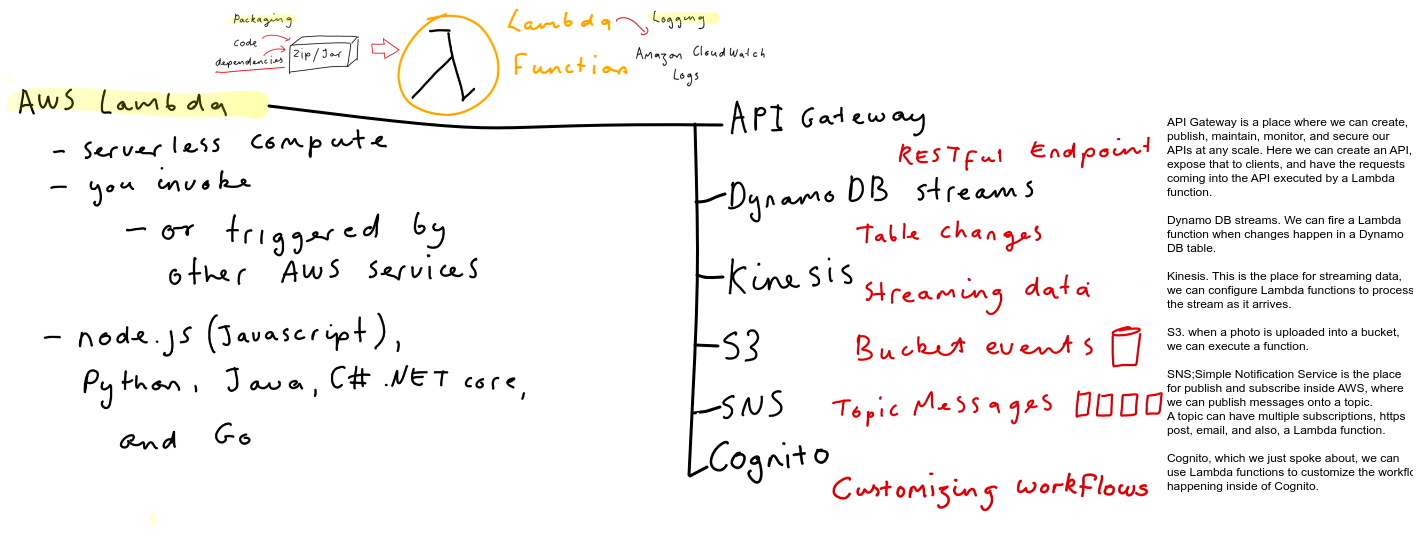 Packaging
code
dependencies
Zip/Jar
Lambda
Function
Logging
Amazon CloudWatch
Logs
AWS Lambda
- serverless compute
- you invoke
- or triggered by
other AWS services
- node.js (Javascript),
Python, Java, C# .NET core,
and Go
API Gateway
RESTful Endpoint
Dynamo DB streams
Table changes
Kinesis
Streaming data
S3
Bucket events
SNS
Topic Messages
Cognito
Customizing workflows
API Gateway is a place where we can create,
publish, maintain, monitor, and secure our
APIs at any scale. Here we can create an API,
expose that to clients, and have the requests
coming into the API executed by a Lambda
function.
Dynamo DB streams. We can fire a Lambda
function when changes happen in a Dynamo
DB table.
Kinesis. This is the place for streaming data,
we can configure Lambda functions to process
the stream as it arrives.
S3. when a photo is uploaded into a bucket,
we can execute a function.
SNS;Simple Notification Service is the place
for publish and subscribe inside AWS, where
we can publish messages onto a topic.
A topic can have multiple subscriptions, https
post, email, and also, a Lambda function.
Cognito, which we just spoke about, we can
use Lambda functions to customize the workflo
happening inside of Cognito.